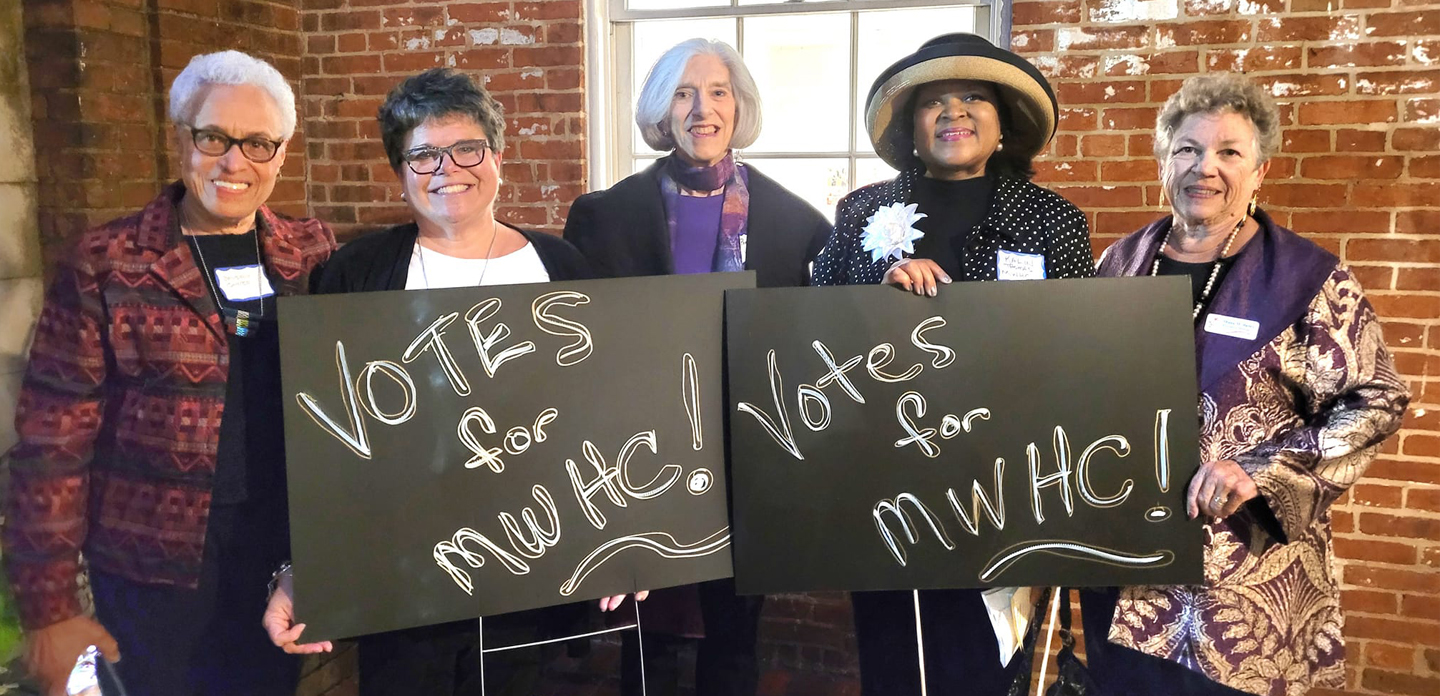 VOTES
for
MWHC!
Votes
for
MWHC!